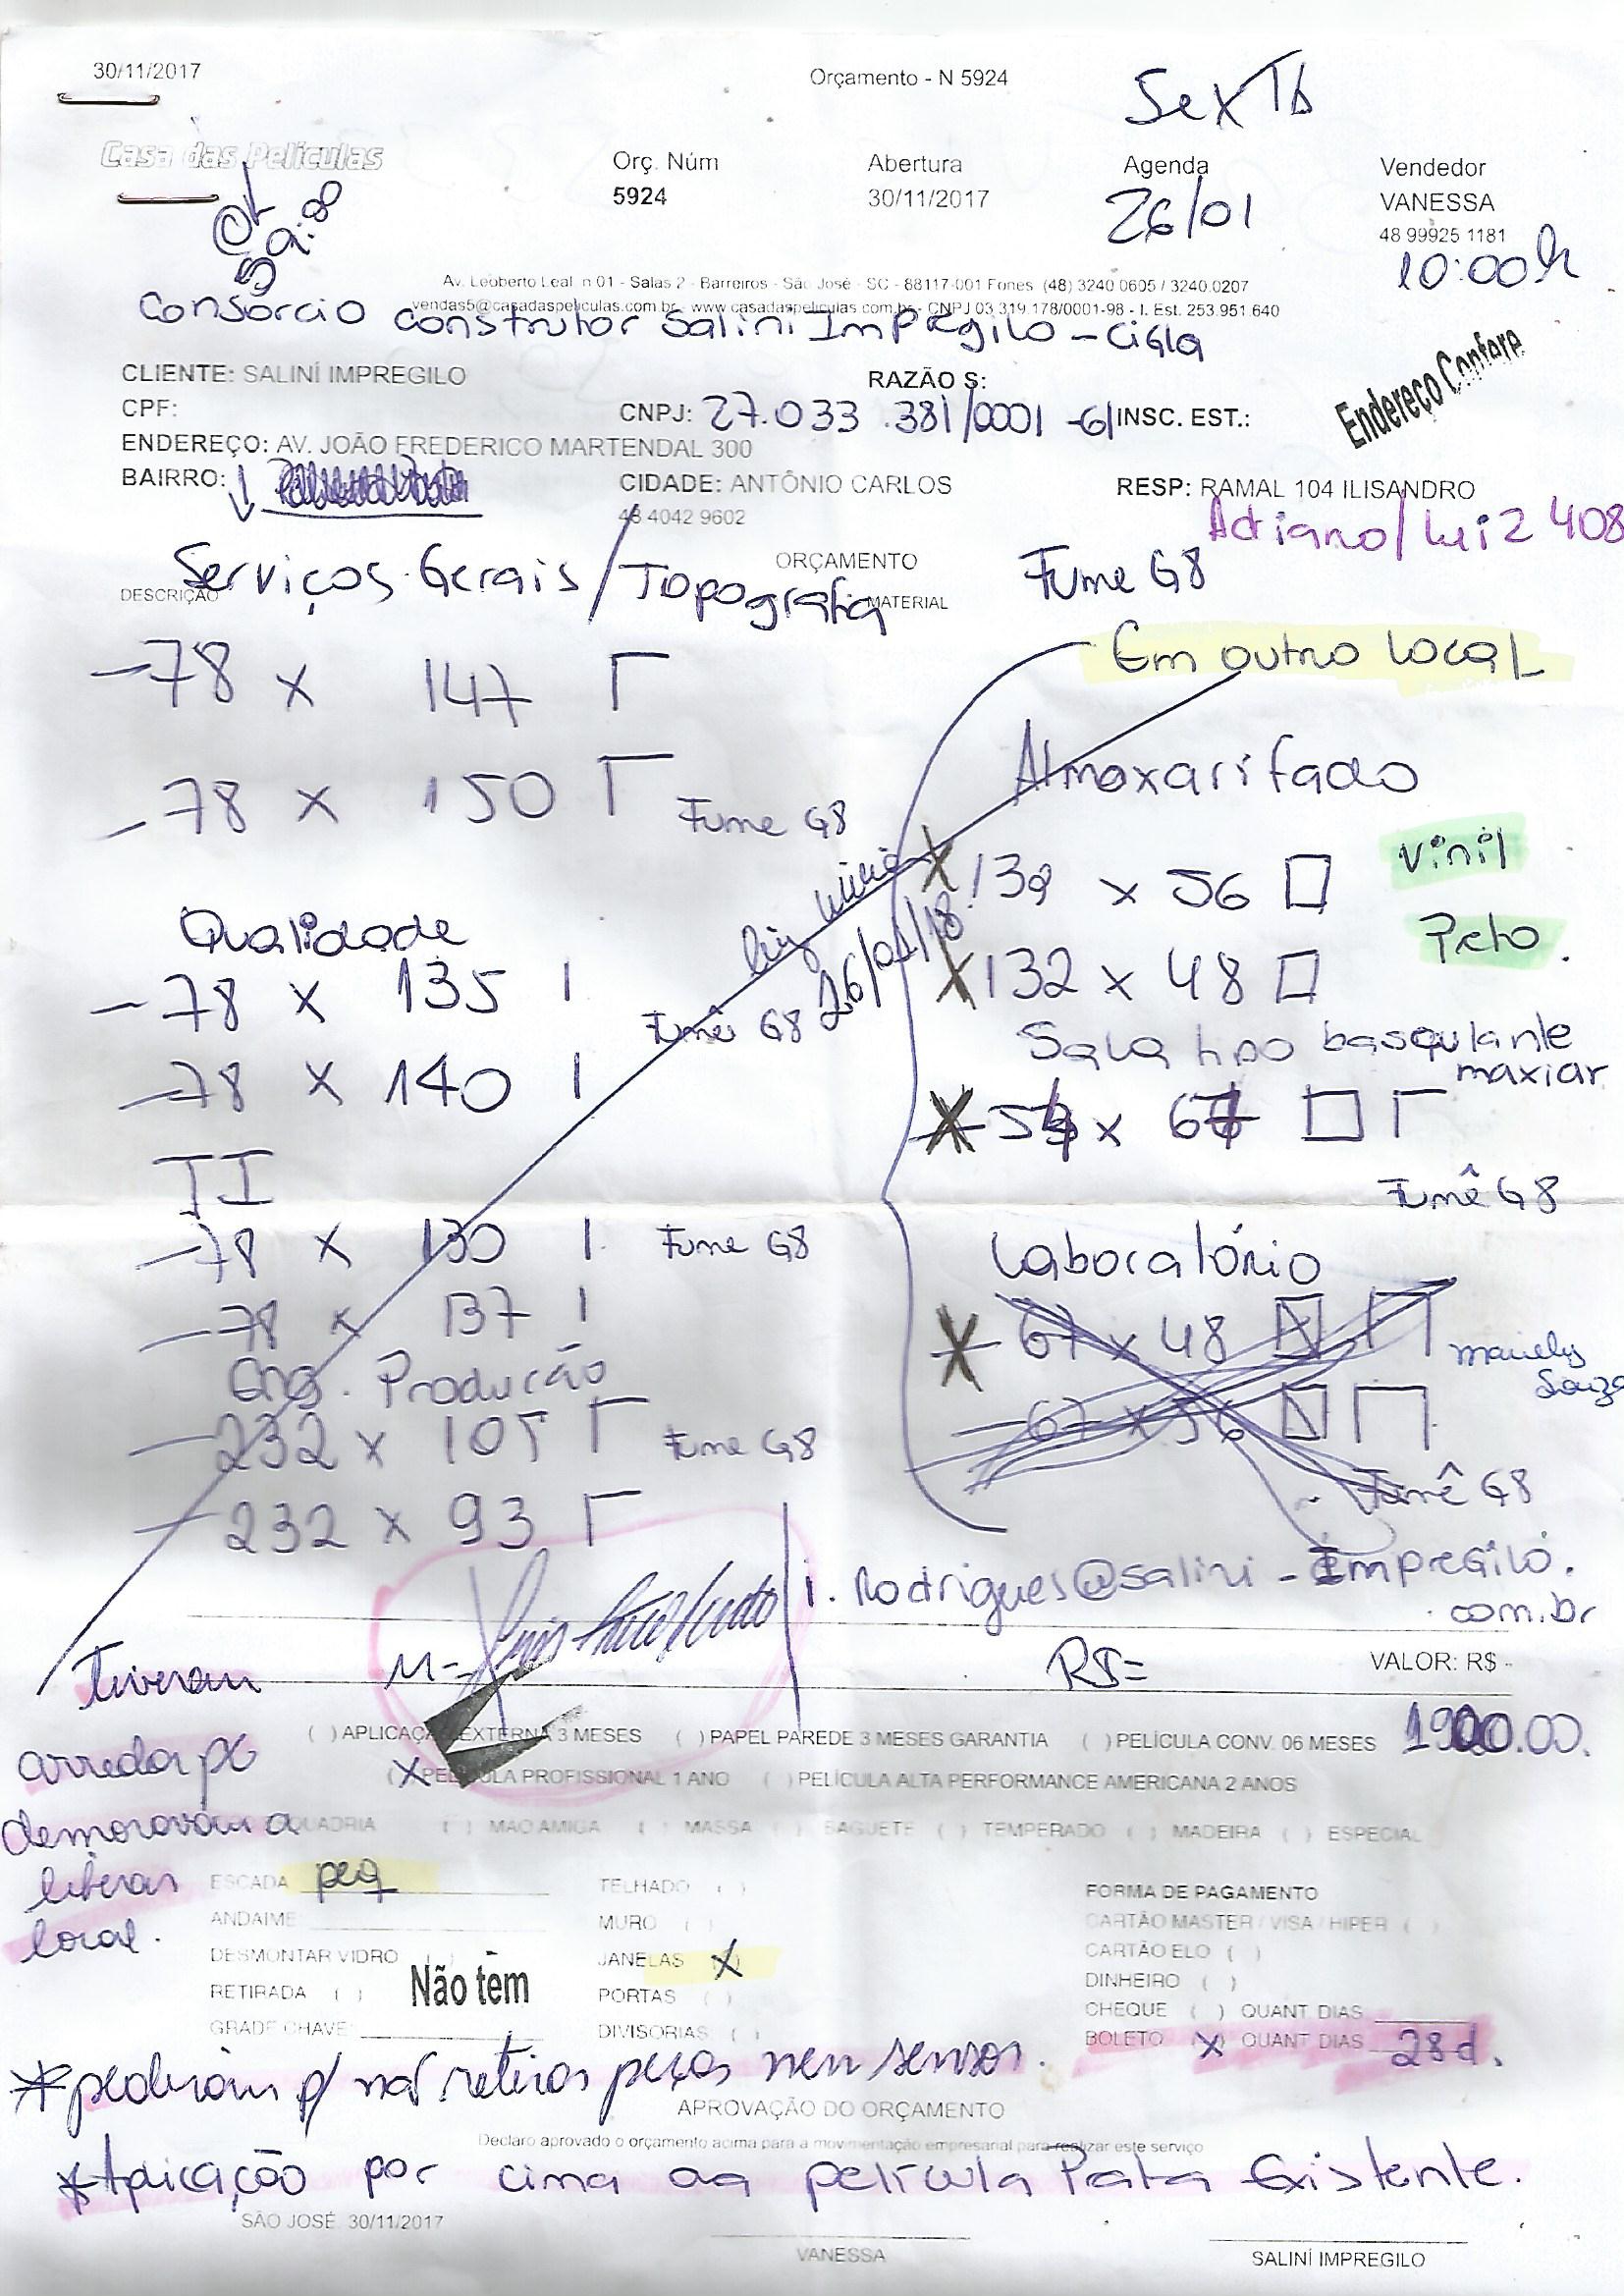 30/11/2017
Orçamento - N 5924
Casa das Películas
Orç. Núm
5924
Abertura
30/11/2017
Agenda
26/01
Vendedor
VANESSA
48 99925 1181
10:00h
OK
Av. Leoberto Leal n 01 - Salas 2 - Barreiros - São José - SC - 88117-001 Fones (48) 3240.0605 / 3240.0207
vendas5@casadaspeliculas.com.br - www.casadaspeliculas.com.br - CNPJ 03.319.178/0001-98 - I. Est. 253.951.640
Consórcio construtor Salini Impregilo - Cigla
CLIENTE: SALINÍ IMPREGILO
RAZÃO S:
Endereço Confere
CPF:
CNPJ: 27.033.381/0001-61
INSC. EST.:
ENDEREÇO: AV. JOÃO FREDERICO MARTENDAL 300
BAIRRO:
CIDADE: ANTÔNIO CARLOS
RESP: RAMAL 104 ILISANDRO
48 4042 9602
Adriano/Luiz 408
ORÇAMENTO
Serviços Gerais / Topografia
Fume G8
DESCRIÇÃO
MATERIAL
Em outro local
- 78 x 147
- 78 x 150
Fume G8
Almoxarifado
x 56
vinil
Preto.
26/01/18
132 x 48
Qualidade
- 78 x 135
Fumê G8
- 78 x 140
Sala tipo basculante
maxiar
Fumê G8
TI
- 78 x 130
Fume G8
- 78 x 137
Laboratório
- 67 x 48
- 67 x 56
Fumê G8
Eng. Produção
- 232 x 105
Fume G8
- 232 x 93
i.rodrigues@salini-Impregilo.
com.br
M=
R$=
VALOR: R$
( ) APLICAÇÃO EXTERNA 3 MESES ( ) PAPEL PAREDE 3 MESES GARANTIA ( ) PELÍCULA CONV. 06 MESES
(X PELÍCULA PROFISSIONAL 1 ANO ( ) PELÍCULA ALTA PERFORMANCE AMERICANA 2 ANOS
QUADRIA ( ) MAO AMIGA ( ) MASSA ( ) BAGUETE ( ) TEMPERADO ( ) MADEIRA ( ) ESPECIAL
Tiveram
demoraram a
liberar
local.
ESCADA peq
TELHADO ( )
FORMA DE PAGAMENTO
ANDAIME
MURO ( )
CARTÃO MASTER / VISA / HIPER ( )
DESMONTAR VIDRO ( )
JANELAS X
CARTÃO ELO ( )
RETIRADA ( )
Não tem
PORTAS ( )
DINHEIRO ( )
GRADE CHAVE
DIVISORIAS ( )
CHEQUE ( ) QUANT DIAS
BOLETO (X) QUANT DIAS 28d.
*pediram p/ não retirar peças nem sensor.
APROVAÇÃO DO ORÇAMENTO
Declaro aprovado o orçamento acima para a movimentação empresarial para realizar este serviço
*Aplicação por cima da película Prata Existente.
SÃO JOSÉ, 30/11/2017
VANESSA
SALINÍ IMPREGILO